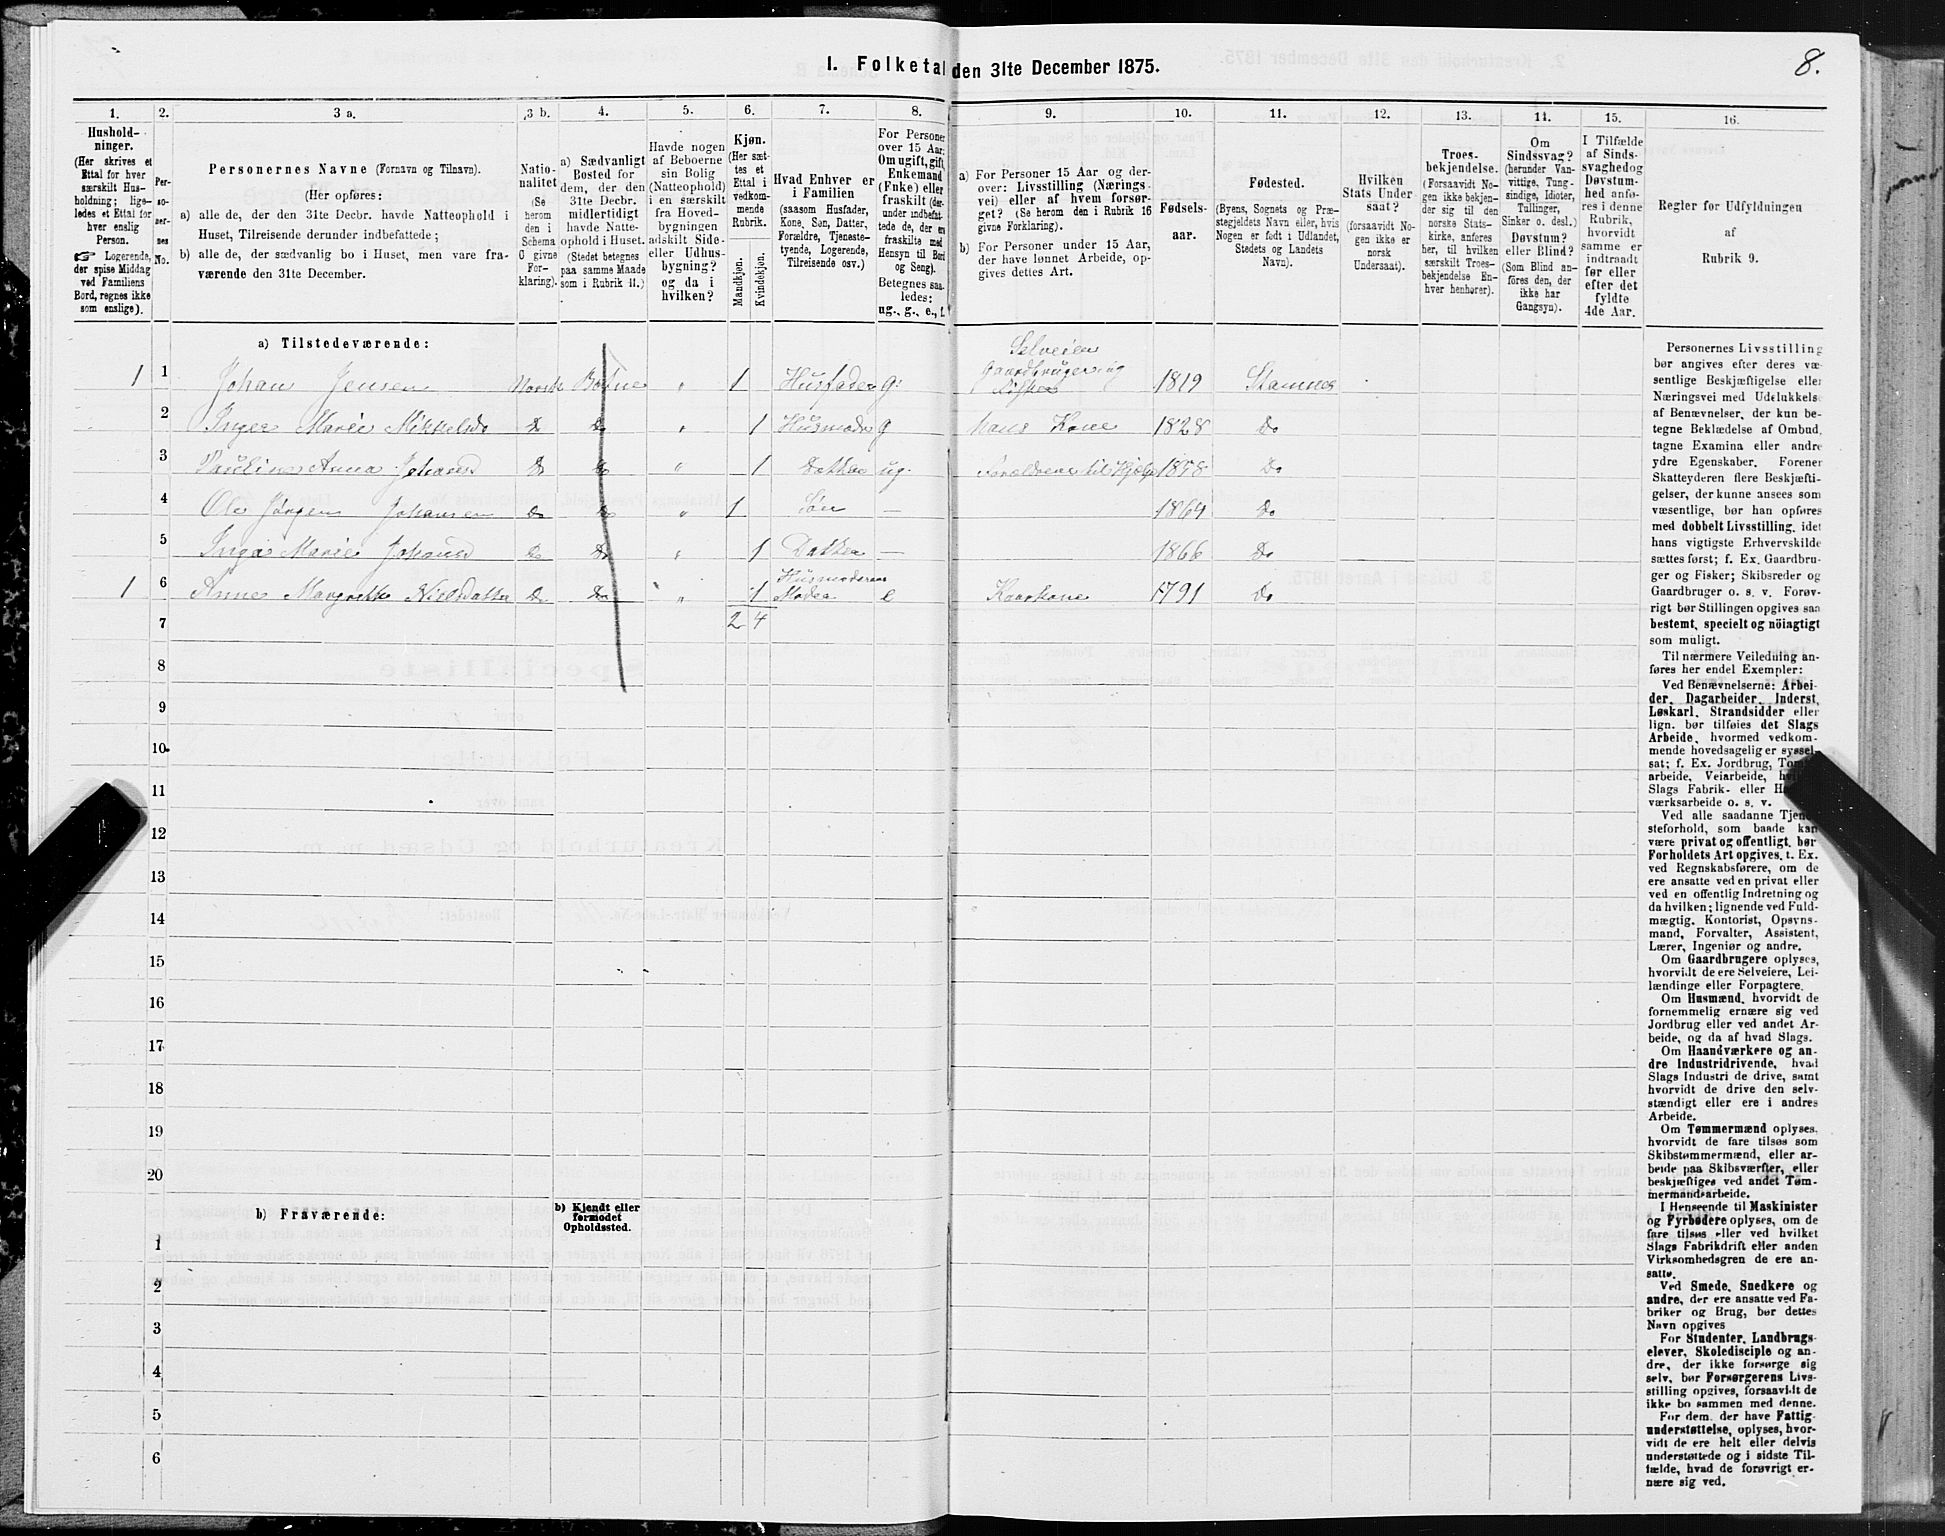 I. Folketal den 31te December 1875.
8.
1.
2.
3 a.
3 b.
4.
5.
6.
7.
8.
9.
10.
11.
12.
13.
14.
15.
16.
Hushold-
ninger.
(Her skrives et
Ettal for hver
særskilt Hus-
holdning; lige-
ledes et Ettal for
hver enslig
Person.
☞ Logerende,
der spise Middag
ved Familiens
Bord, regnes ikke
som enslige).
Per-
so-
ner-
nes
No.
Personernes Navne (Fornavn og Tilnavn).
(Her opføres:
a) alle de, der den 31te Decbr. havde Natteophold i
Huset, Tilreisende derunder indbefattede;
b) alle de, der sædvanlig bo i Huset, men vare fra-
værende den 31te December.
Natio-
nalitet
(Se
herom
den i
Schema
C givne
For-
klaring).
a) Sædvanligt
Bosted for
dem, der den
31te Decbr.
midlertidigt
havde Natte-
ophold i Huset.
(Stedet betegnes
paa samme Maade
som i Rubrik 11.)
Havde nogen
af Beboerne
sin Bolig
(Natteophold)
i en særskilt
fra Hoved-
bygningen
adskilt Side-
eller Udhus-
bygning?
og da i
hvilken?
Kjøn.
(Her sæt-
tes et
Ettal i
vedkom-
mende
Rubrik.
Mandkjøn.
Kvindekjøn.
Hvad Enhver er
i Familien
(saasom Husfader,
Kone, Søn, Datter,
Forældre, Tjeneste-
tyende, Logerende,
Tilreisende osv.)
For Personer
over 15 Aar:
Om ugift, gift,
Enkemand
(Enke) eller
fraskilt (der-
under indbefat-
tede de, der ere
fraskilte med
Hensyn til Bord
og Seng).
Betegnes saa-
ledes:
ug., g., e., f.
a) For Personer 15 Aar og der-
over: Livsstilling (Nærings-
vei) eller af hvem forsør-
get? (Se herom den i Rubrik 16
givne Forklaring).
b) For Personer under 15 Aar,
der have lønnet Arbeide, op-
gives dettes Art.
Fødsels-
aar.
Fødested.
(Byens, Sognets og Præ-
stegjeldets Navn eller, hvis
Nogen er født i Udlandet,
Stedets og Landets
Navn).
Hvilken
Stats Under-
saat?
(forsaavidt No-
gen ikke er
norsk
Undersaat).
Troes-
bekjendelse.
(Forsaavidt No-
gen ikke bekjen-
der sig til den
norske Stats-
kirke, anføres
her, til hvilken
særskilt Troes-
bekjendelse En-
hver henhører).
Om
Sindssvag?
(herunder Van-
vittige, Tung-
sindige, Idioter,
Tullinger,
Sinker o. desl.)
Døvstum?
eller Blind?
(Som Blind an-
føres den, der
ikke har
Gangsyn).
I Tilfælde
af Sinds-
svaghed og
Døvstum-
hed anfø-
res i denne
Rubrik,
hvorvidt
samme er
indtraadt
før eller
efter det
fyldte
4de Aar.
Regler for Udfyldningen
af
Rubrik 9.
a) Tilstedeværende:
1 1 Johan Jensen Norsk Botne „ 1 Husfader g: Selveier Gaardbruger og Fisker 1819 Stamnes
2 Inger Marie Mikkelsd. Do Do „ 1 Husmoder g Hans Kone 1828 Do
3 Pauline Anna Johansd Do Do „ 1 Datter ug. Forældrene til Hjelp 1858 Do
4 Ole Jørgen Johansen Do Do „ 1 Søn — 1864 Do
5 Inga Marie Johansd Do Do „ 1 Datter — 1866 Do
1 6 Anne Margrethe Nielsdatter Do Do „ 1 Husmoderens Moder e Kaarkone 1791 Do
7 2 4
8
9
10
11
12
13
14
15
16
17
18
19
20
b) Fraværende:
b) Kjendt eller
formodet
Opholdssted.
1
2
3
4
5
6
Personernes Livsstilling
bør angives efter deres væ-
sentlige Beskjæftigelse eller
Næringsvei med Udelukkelse
af Benævnelser, der kun be-
tegne Beklædelse af Ombud,
tagne Examina eller andre
ydre Egenskaber. Forener
Skatteyderen flere Beskjæfti-
gelser, der kunne ansees som
væsentlige, bør han opføres
med dobbelt Livsstilling, idet
hans vigtigste Erhvervskilde
sættes først; f. Ex. Gaardbru-
ger og Fisker; Skibsreder og
Gaardbruger o. s. v. Forøv-
rigt bør Stillingen opgives saa
bestemt, specielt og nöiagtigt
som muligt.
Til nærmere Veiledning an-
føres her endel Exempler:
Ved Benævnelserne: Arbei-
der, Dagarbeider, Inderst,
Løskarl, Strandsidder eller
lign. bør tilføies det Slags
Arbeide, hvormed vedkom-
mende hovedsagelig er syssel-
sat; f. Ex. Jordbrug, Tomt-
arbeide, Veiarbeide, hvilket
Slags Fabrik- eller Haand-
værksarbeide o. s. v.
Ved alle saadanne Tjene-
steforhold, som baade kan
være privat og offentligt, bør
Forholdets Art opgives, t. Ex.
ved Regnskabsførere, om de
ere ansatte ved en privat eller
ved en offentlig Indretning og
da hvilken; lignende ved Fuld-
mægtig, Kontorist, Opsyns-
mand, Forvalter, Assistent,
Lærer, Ingeniør og andre.
Om Gaardbrugere oplyses,
hvorvidt de ere Selveiere, Lei-
lændinge eller Forpagtere.
Om Husmænd, hvorvidt de
fornemmelig ernære sig ved
Jordbrug eller ved andet Ar-
beide, og da af hvad Slags.
Om Haandværkere og an-
dre Industridrivende, hvad
Slags Industri de drive, samt
hvorvidt de drive den selv-
stændigt eller ere i andres
Arbeide.
Om Tømmermænd oplyses,
hvorvidt de fare tilsøs som
Skibstømmermænd, eller ar-
beide paa Skibsværfter, eller
beskjæftiges ved andet Tøm-
mermandsarbeide.
I Henseende til Maskinister
og Fyrbødere oplyses, om de
fare tilsøs eller ved hvilket
Slags Fabrikdrift eller anden
Virksomhedsgren de ere an-
satte.
Ved Smede, Snedkere og
andre, der ere ansatte ved Fa-
briker og Brug, bør dettes
Navn opgives
For Studenter, Landbrugs-
elever, Skoledisciple og an-
dre, der ikke forsørge sig
selv, bør Forsørgerens Livs-
stilling opgives, forsaavidt de
ikke bo sammen med denne.
For dem, der have Fattig-
understøttelse, oplyses, hvor-
vidt de ere helt eller delvis
understøttede og i sidste Til-
fælde, hvad de forøvrigt er-
nære sig ved.